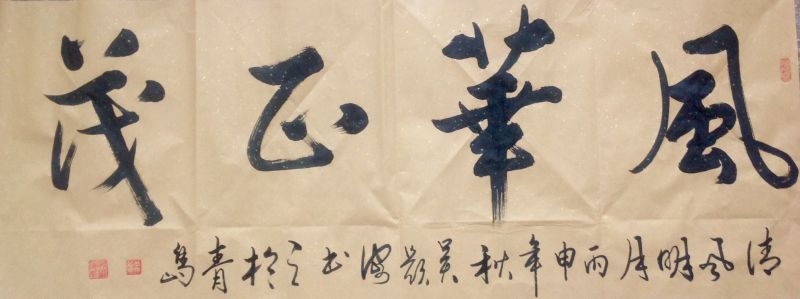 風華正茂
清風明月丙申年秋吴影波书之於青島